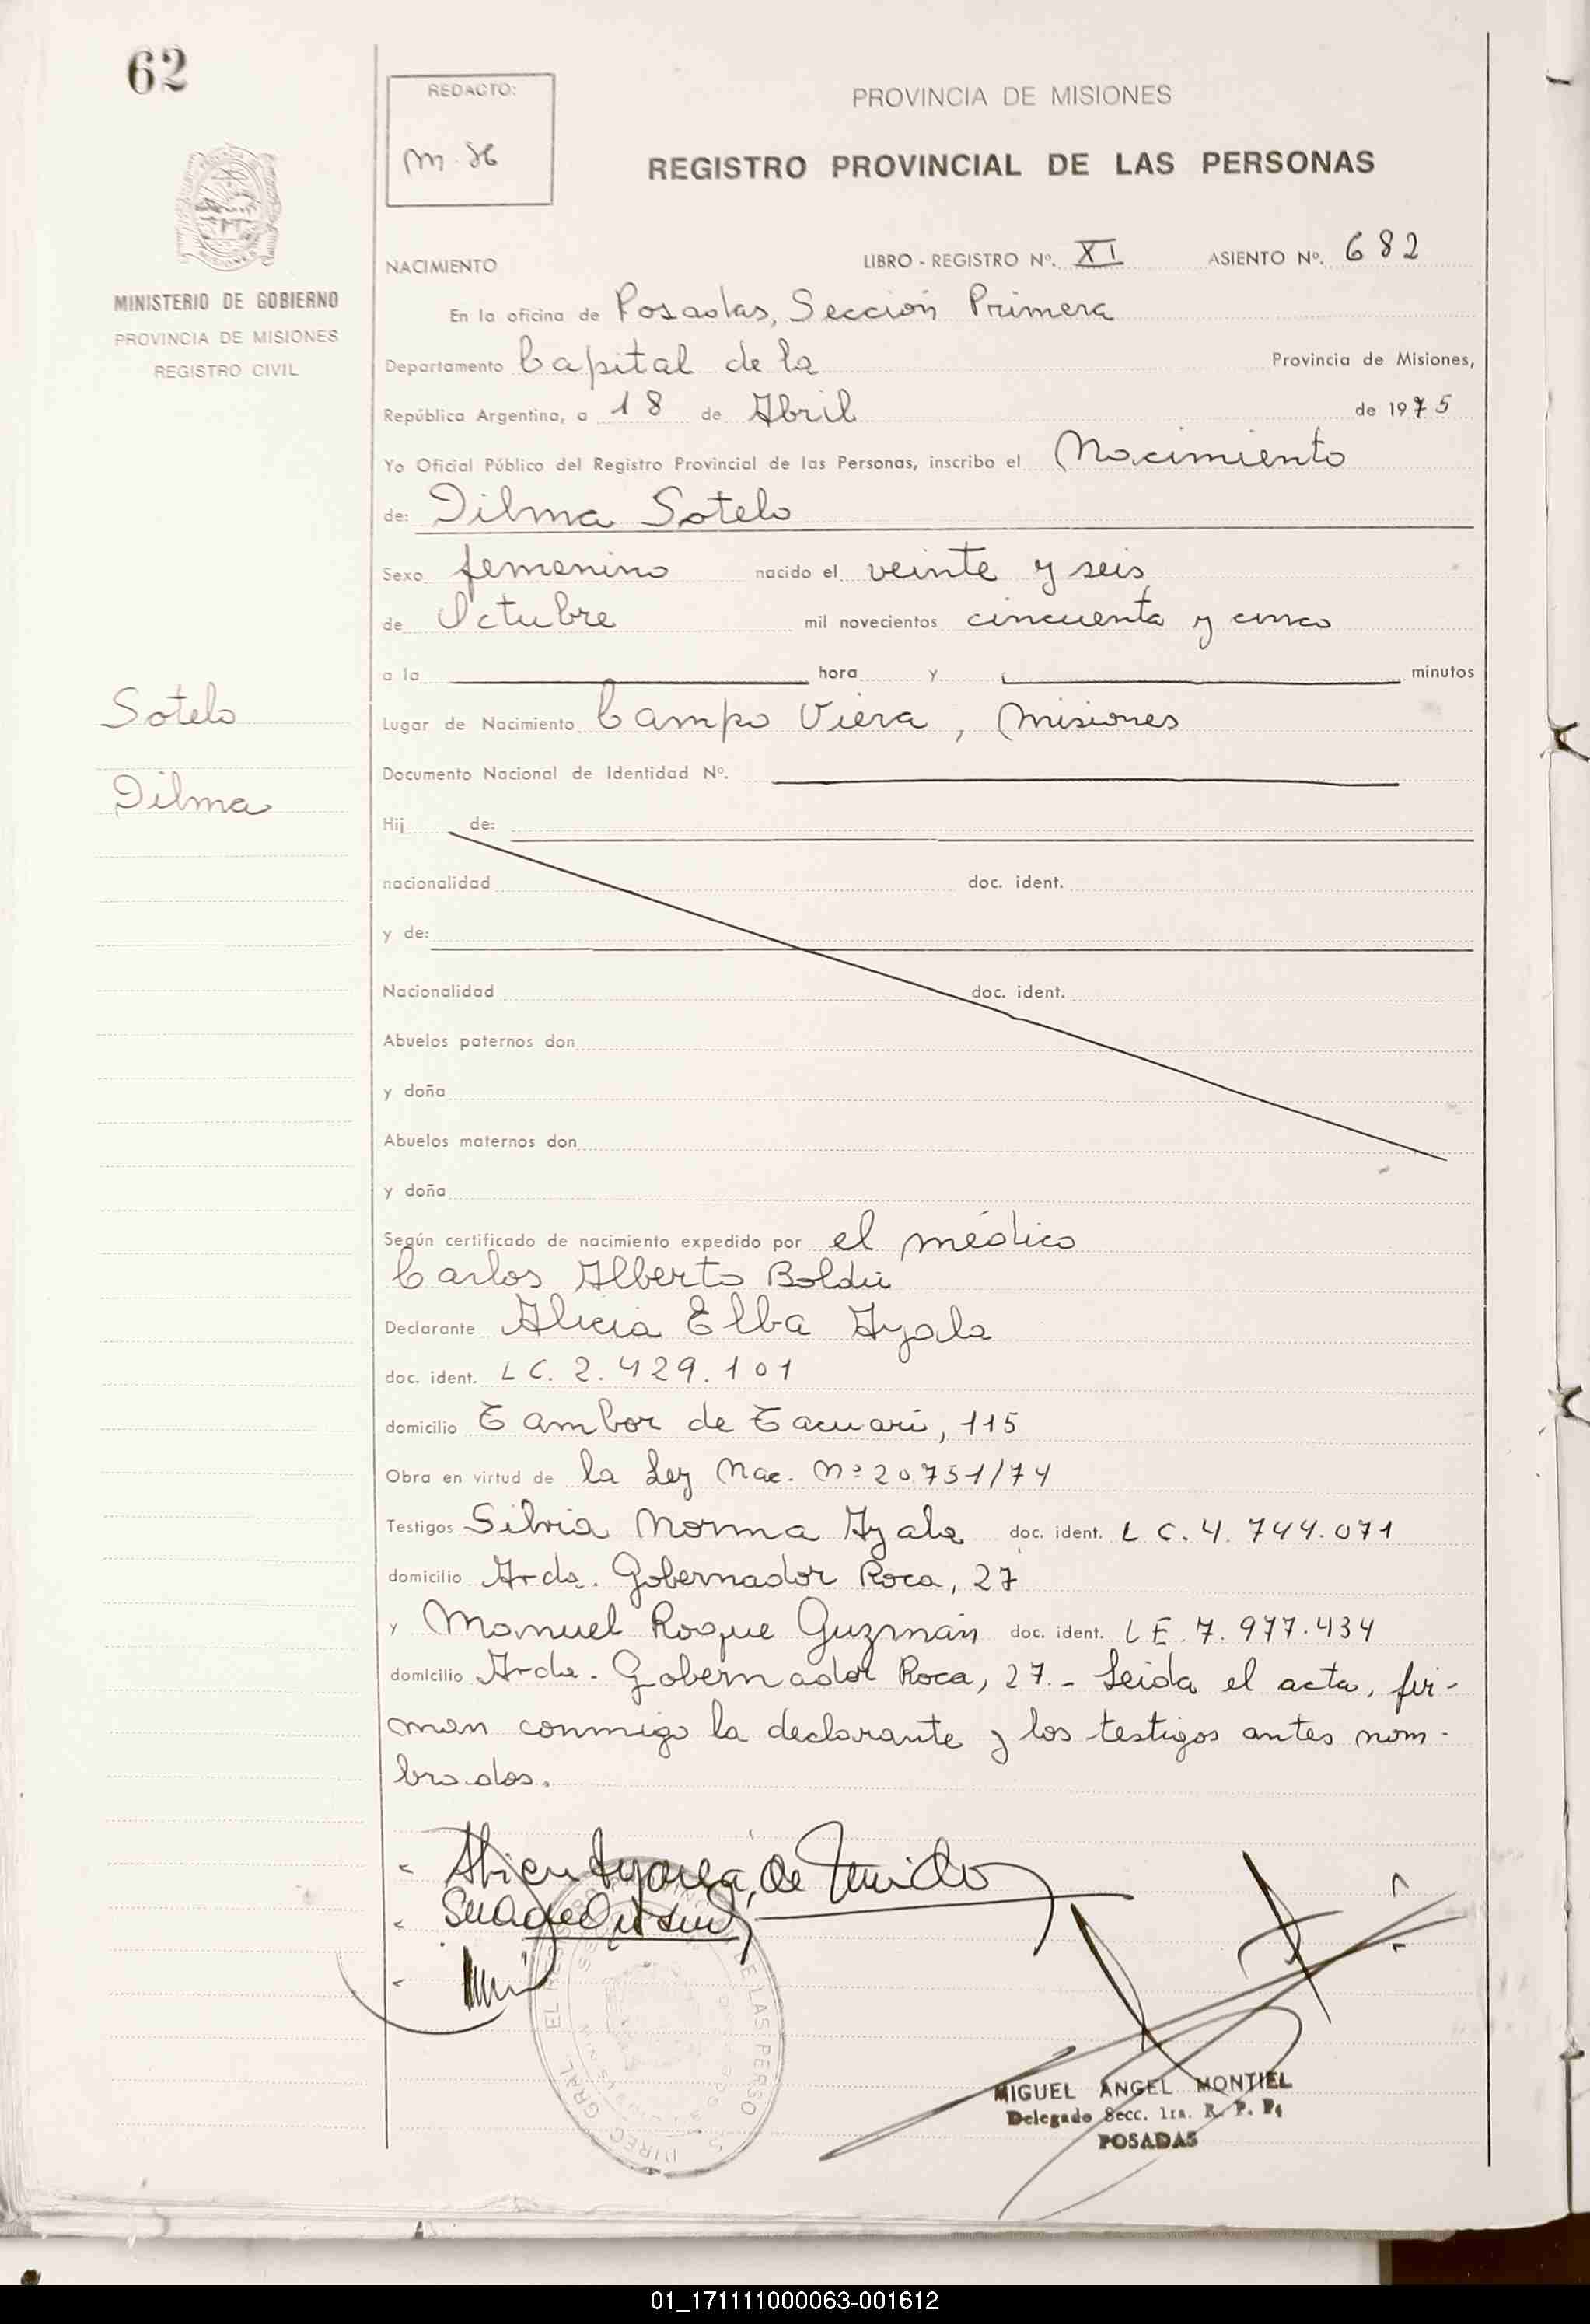 62
REDACTO:
PROVINCIA DE MISIONES
REGISTRO PROVINCIAL DE LAS PERSONAS
NACIMIENTO
LIBRO - REGISTRO Nº. XI ASIENTO Nº. 682
MINISTERIO DE GOBIERNO
PROVINCIA DE MISIONES
REGISTRO CIVIL
En la oficina de Posadas, Sección Primera
Departamento Capital de la Provincia de Misiones,
República Argentina, a 18 de Abril de 1975
Yo Oficial Público del Registro Provincial de las Personas, inscribo el Nacimiento
de: Dilma Sotelo
Sexo femenino nacido el veinte y seis
de Octubre mil novecientos cincuenta y cinco
a la hora y minutos
Sotelo
Dilma
Lugar de Nacimiento Campo Viera, Misiones
Documento Nacional de Identidad Nº.
Hij de:
nacionalidad doc. ident.
y de:
Nacionalidad doc. ident.
Abuelos paternos don
y doña
Abuelos maternos don
y doña
Según certificado de nacimiento expedido por el médico
Carlos Alberto Boldú
Declarante Alicia Elba Ayala
doc. ident. LC. 2.429.101
domicilio Tambor de Tacuarí, 115
Obra en virtud de la Ley Nac. Nº 20.751/74
Testigos Silvia Norma Ayala doc. ident. LC. 4.744.071
domicilio Avda. Gobernador Roca, 27
y Manuel Roque Guzmán doc. ident. LE. 7.977.434
domicilio Avda. Gobernador Roca, 27.- Leida el acta, fir-
man conmigo la declarante y los testigos antes nom-
brados.
MIGUEL ANGEL MONTIEL
Delegado Secc. 1ra. R. P. P.
POSADAS
01_171111000063-001612